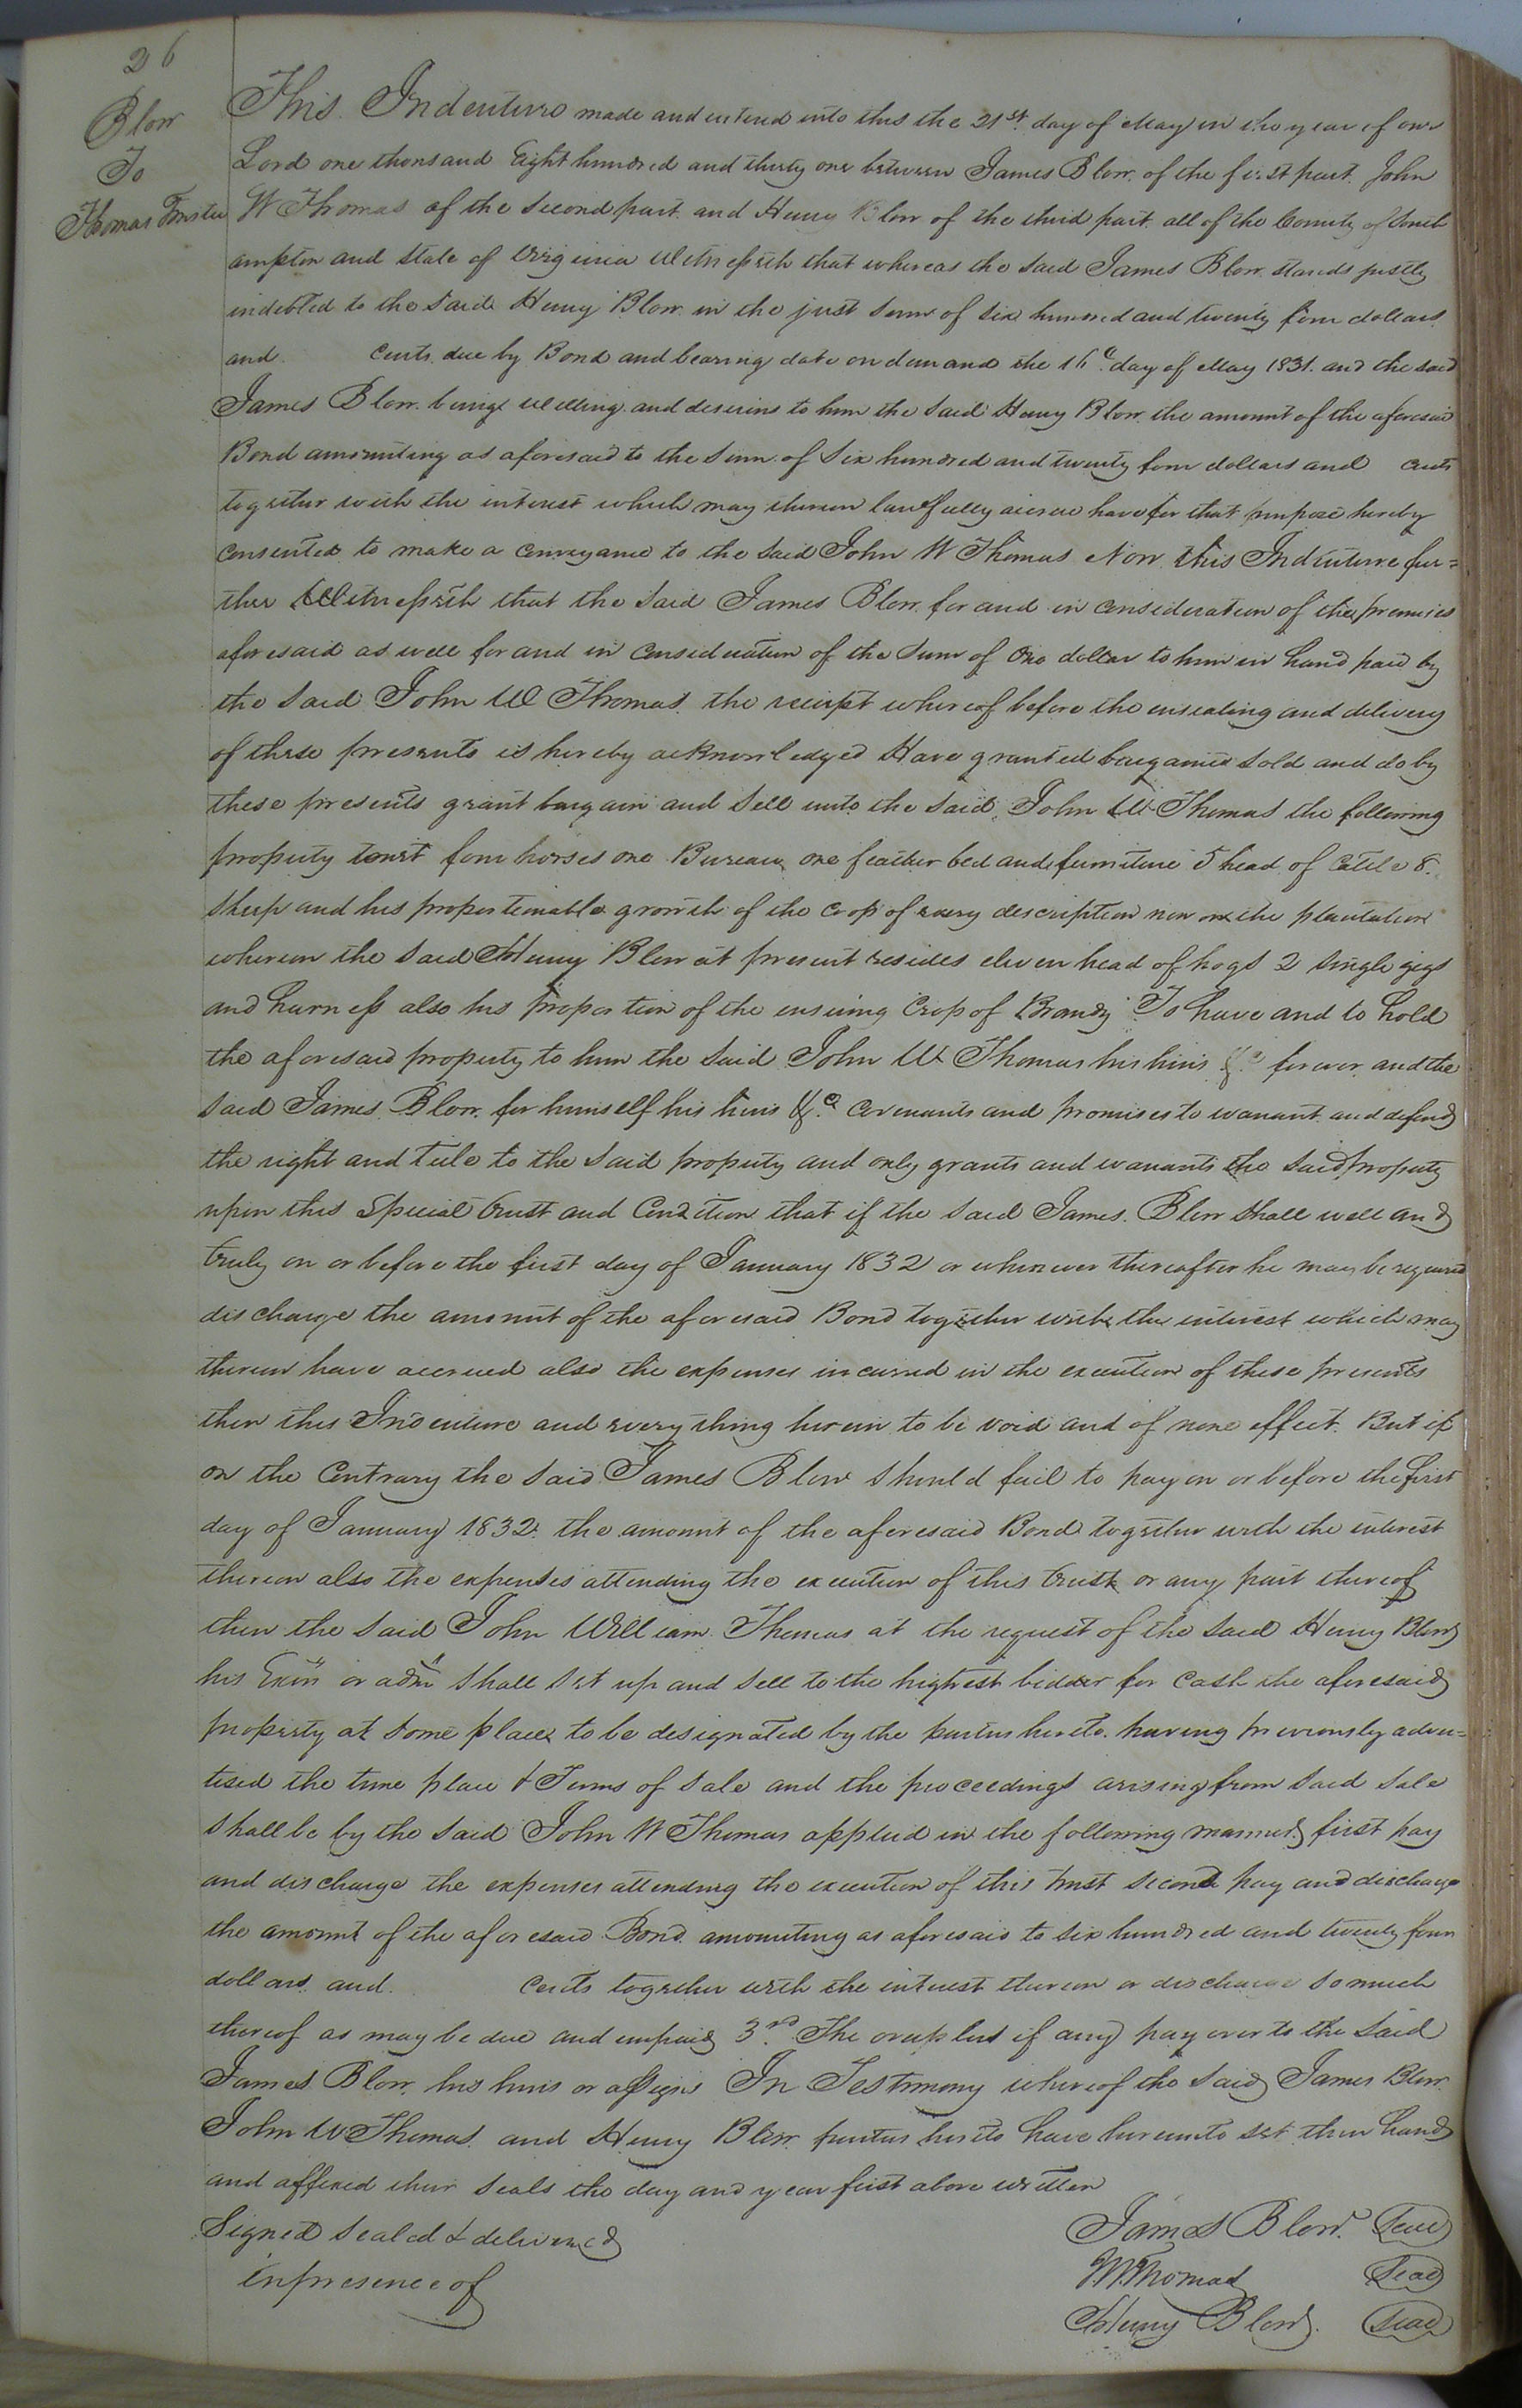 26
Blow
To
Thomas Trustee
This Indenture made and entered into this the 21st day of May in the year of our
Lord one thousand Eight hundred and thirty one between James Blow of the first part John
W Thomas of the second part and Henry Blow of the third part all of the County of South
ampton and State of Virginia Witnesseth that whereas the said James Blow stands justly
indebted to the said Henry Blow in the just sum of six hundred and twenty four dollars
and cents due by Bond and bearing date on demand the day of May 1831. and the said
James Blow being willing and desirous to him the said Henry Blow the amount of the aforesaid
Bond amounting as aforesaid to the sum of Six hundred and twenty four dollars and cents
together with the interest which may thereon lawfully accrue have for that purpose hereby
consented to make a conveyance to the said John W Thomas Now this Indenture fur=
ther Witnesseth that the said James Blow for and in consideration of the premises
aforesaid as well for and in consideration of the sum of One dollar to him in hand paid by
the said John W Thomas the receipt whereof before the ensealing and delivery
of these presents is hereby acknowledged Have granted bargained sold and do by
these presents grant bargain and sell unto the said John W Thomas the following
property towit four horses one Bureau one feather bed and furniture 5 head of Cattle 8
Sheep and his proportionable growth of the crop of every description now on the plantation
whereon the said Henry Blow at present resides eleven head of hogs 2 single gigs
and harness also his proportion of the ensuing Crop of Brandy To have and to hold
the aforesaid property to him the said John W Thomas his heirs &c forever and the
said James Blow for himself his heirs &c covenants and promises to warrant and defend
the right and title to the said property and only grants and warrants the said property
upon this Special trust and Condition that if the said James Blow shall well and
truly on or before the first day of January 1832 or whenever thereafter he may be required
discharge the amount of the aforesaid Bond together with the interest which may
thereon have accrued also the expenses incurred in the execution of these presents
then this Indenture and every thing herein to be void and of none effect. But if
on the Contrary the said James Blow should fail to pay on or before the first
day of January 1832. the amount of the aforesaid Bond together with the interest
thereon also the expenses attending the execution of this trust or any part thereof
then the said John William Thomas at the request of the said Henry Blow
his Exors or admr shall set up and sell to the highest bidder for cash the aforesaid
property at some place to be designated by the parties hereto having previously adver=
tised the time place & Terms of sale and the proceedings arising from said sale
shall be by the said John W Thomas applied in the following manner first pay
and discharge the expenses attending the execution of this trust second pay and discharge
the amount of the aforesaid Bond amounting as aforesaid to six hundred and twenty four
dollars and cents together with the interest thereon or discharge so much
thereof as may be due and unpaid 3rd The overplus if any pay over to the said
James Blow his heirs or assigns In Testimony whereof the said James Blow
John W Thomas and Henry Blow parties hereto have hereunto set their hands
and affixed their seals the day and year first above written
Signed sealed & delivered
in presence of
James Blow Seal
Thomas Seal
Henry Blow Seal